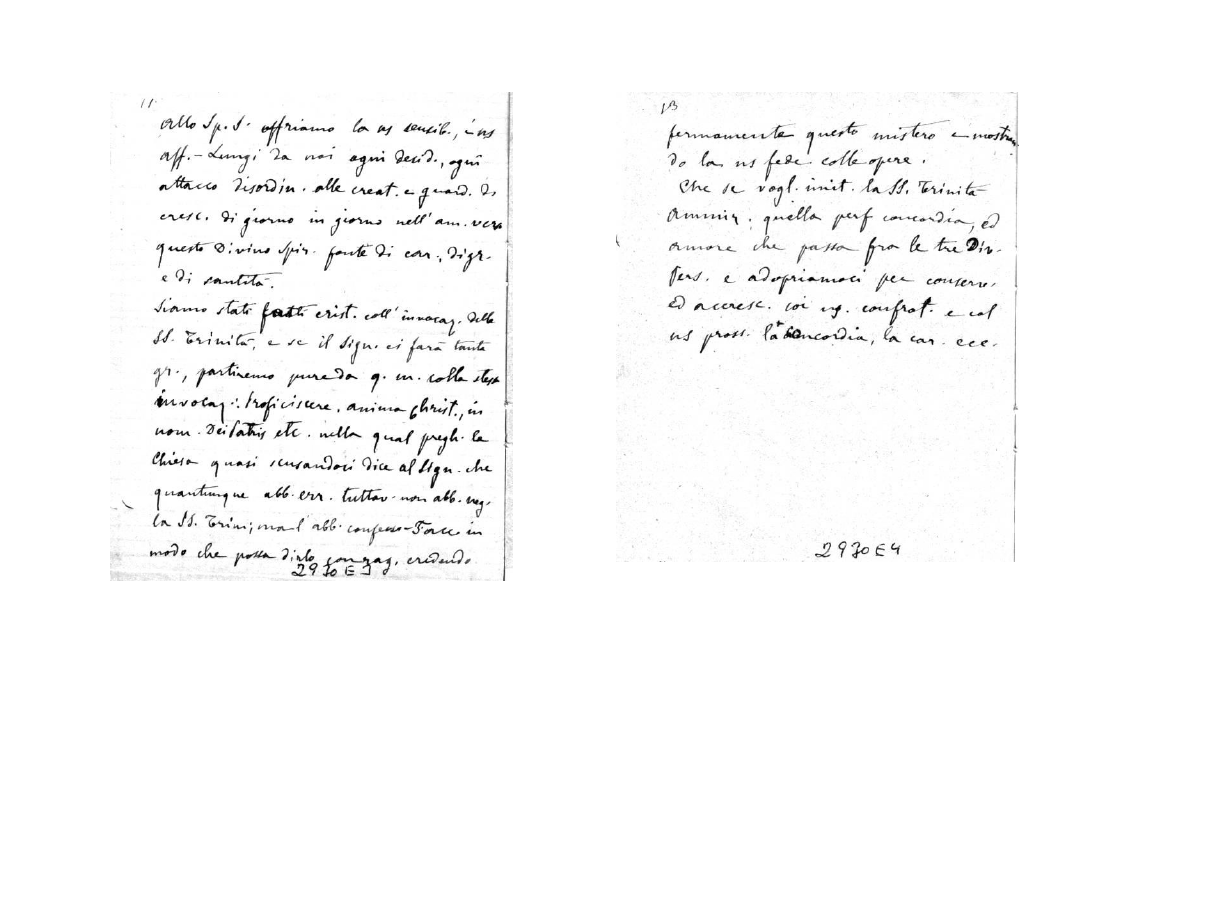 11
Allo Sp. S. offriamo la ns sensib., i ns
aff. - Lungi da noi ogni desid., ogni
attacco disordin. alle creat. e guard. di
cresc. di giorno in giorno nell'am. verso
questo Divino Spir. fonte di car., di gr.
e di santità.
Siamo stati fatti crist. coll'invocaz. della
SS. Trinità, e se il Sign. ci farà tanta
gr., partiremo pure da q. m. colla stessa
invocaz.: Proficiscere, anima Christ., in
nom. Dei Patris etc. nella qual pregh. la
Chiesa quasi scusandoci dice al Sign. che
quantunque abb. err. tuttav. non abb. neg.
la SS. Trin; ma l'abb. confess - Facc. in
modo che possa dirlo con rag. credendo
2930 E 3
13
fermamente questo mistero e mostran
do la ns fede colle opere.
Che se vogl. imit. la SS. Trinità
ammir. quella perf concordia, ed
amore che passa fra le tre Div.
Pers. e adopriamoci per conserv.
ed accresc. coi ns. confrat. e col
ns pross. la concordia, la car. ecc.
2930 E 4